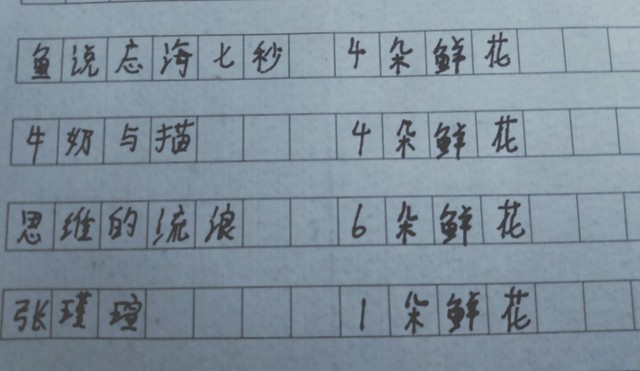 鱼说忘海七秒 4朵鲜花
牛奶与描 4朵鲜花
思维的流浪 6朵鲜花
张瑾瑄 1朵鲜花